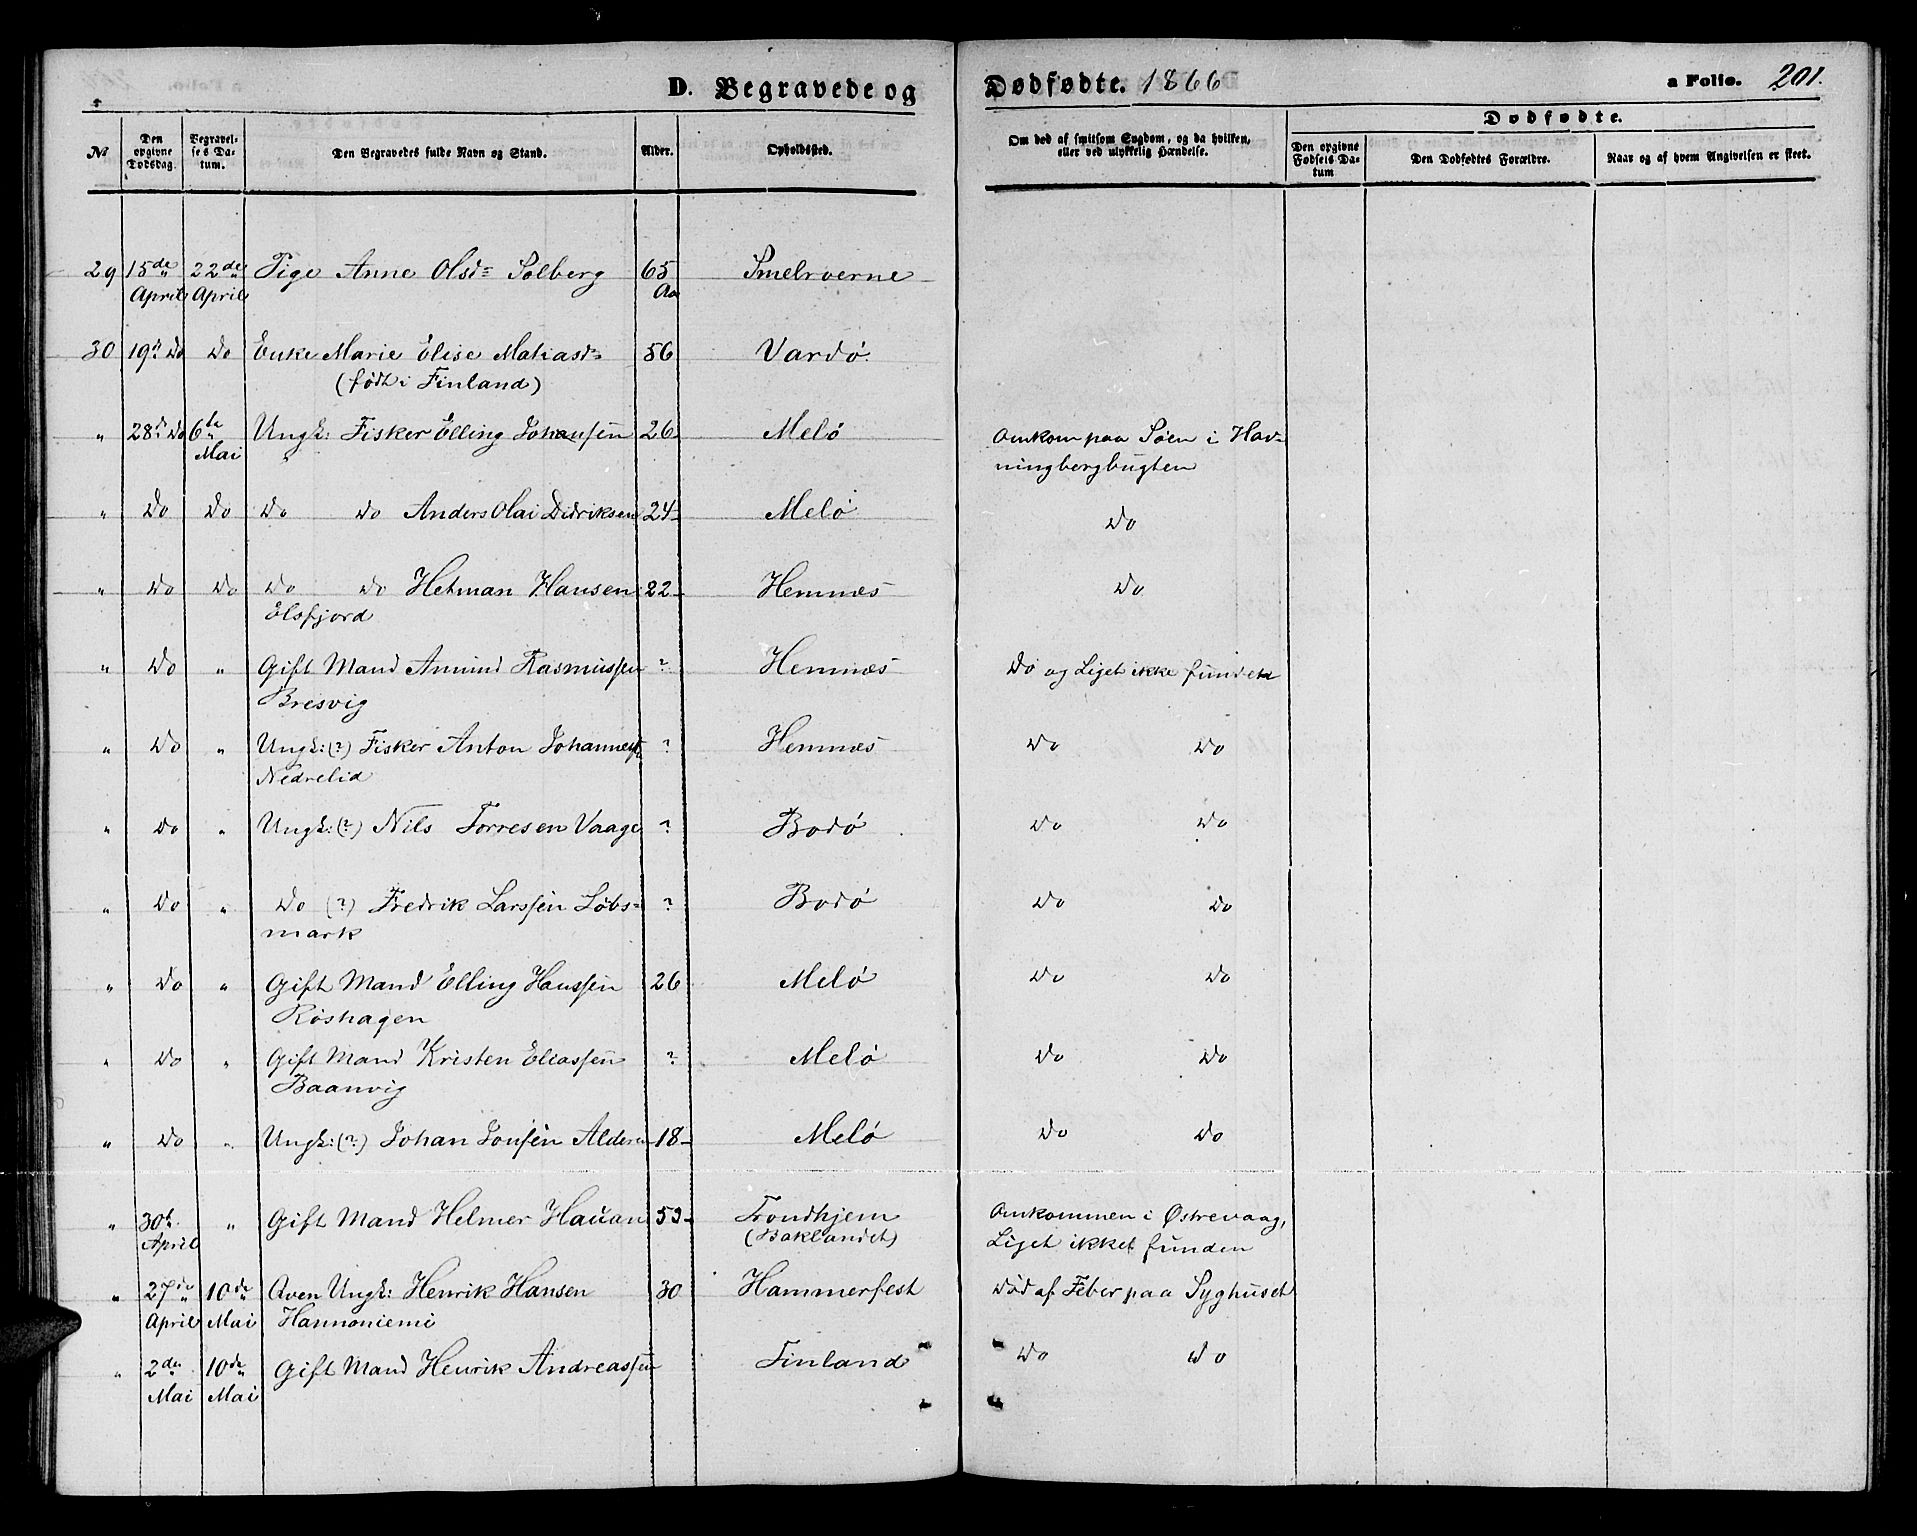 D. Begravede og Dødfødte. 1866 a Folio. 201.
No Den opgivne Dødsdag. Begravelses Datum. Den Begravedes fulde Navn og Stand. Alder. Opholdssted. Om død af smitsom Sygdom, og da hvilken, eller ved ulykkelig Hændelse. Dødfødte. Den opgivne Fødsels Datum Den Dødfødtes Forældre. Naar og af hvem Angivelsen er skeet.
29 15de 22de Pige Anne Olsd= Solberg 65 Smelrverne
April April Aa
30 19d Do Do Enke Marie Elise Matiasd= 56 Vardø
(født i Finland)
" 28d Do 6te Ungk: Fisker Elling Johansen 26 Melø Omkom paa Søen i Hav-
Mai ningbergbugten
" Do Do Do Do Anders Olai Didriksen 24 Melø Do
" Do Do Do Do Hetman Hansen 22 Hemnæs Do
Elsfjord
" Do " Gift Mand Amund Rasmussen ? Hemnæs Do og Liget ikke fundet
Bresvig
" Do " Ungk: (?) Fisker Anton Johannes ? Hemnæs Do Do
Nedrelid
" Do " Ungk: (?) Nils Torresen Vaage ? Bodø Do Do
" Do " Do (?) Fredrik Larssen Løbs= ? Bodø Do Do
mark
" Do " Gift Mand Elling Hanssen 26 Melø Do Do
Røshagen
" Do " Gift Mand Kristen Eliassen ? Melø Do Do
Baanvig
" Do " Ungk: (?) Johan Jonsen Alderen 18 Melø Do Do
" 30t " Gift Mand Helmer Hauan 53 Trondhjem Omkommen i Østrevaag,
April (Baklandet) Liget ikket funden
" 27de 10de Qven Ungk: Henrik Hansen 30 Hammerfest Død af Feber paa Syghuset
April Mai Hannoniemi
" 2den 10de Gift Mand Henrik Andreassen Finland Do Do
Mai Mai